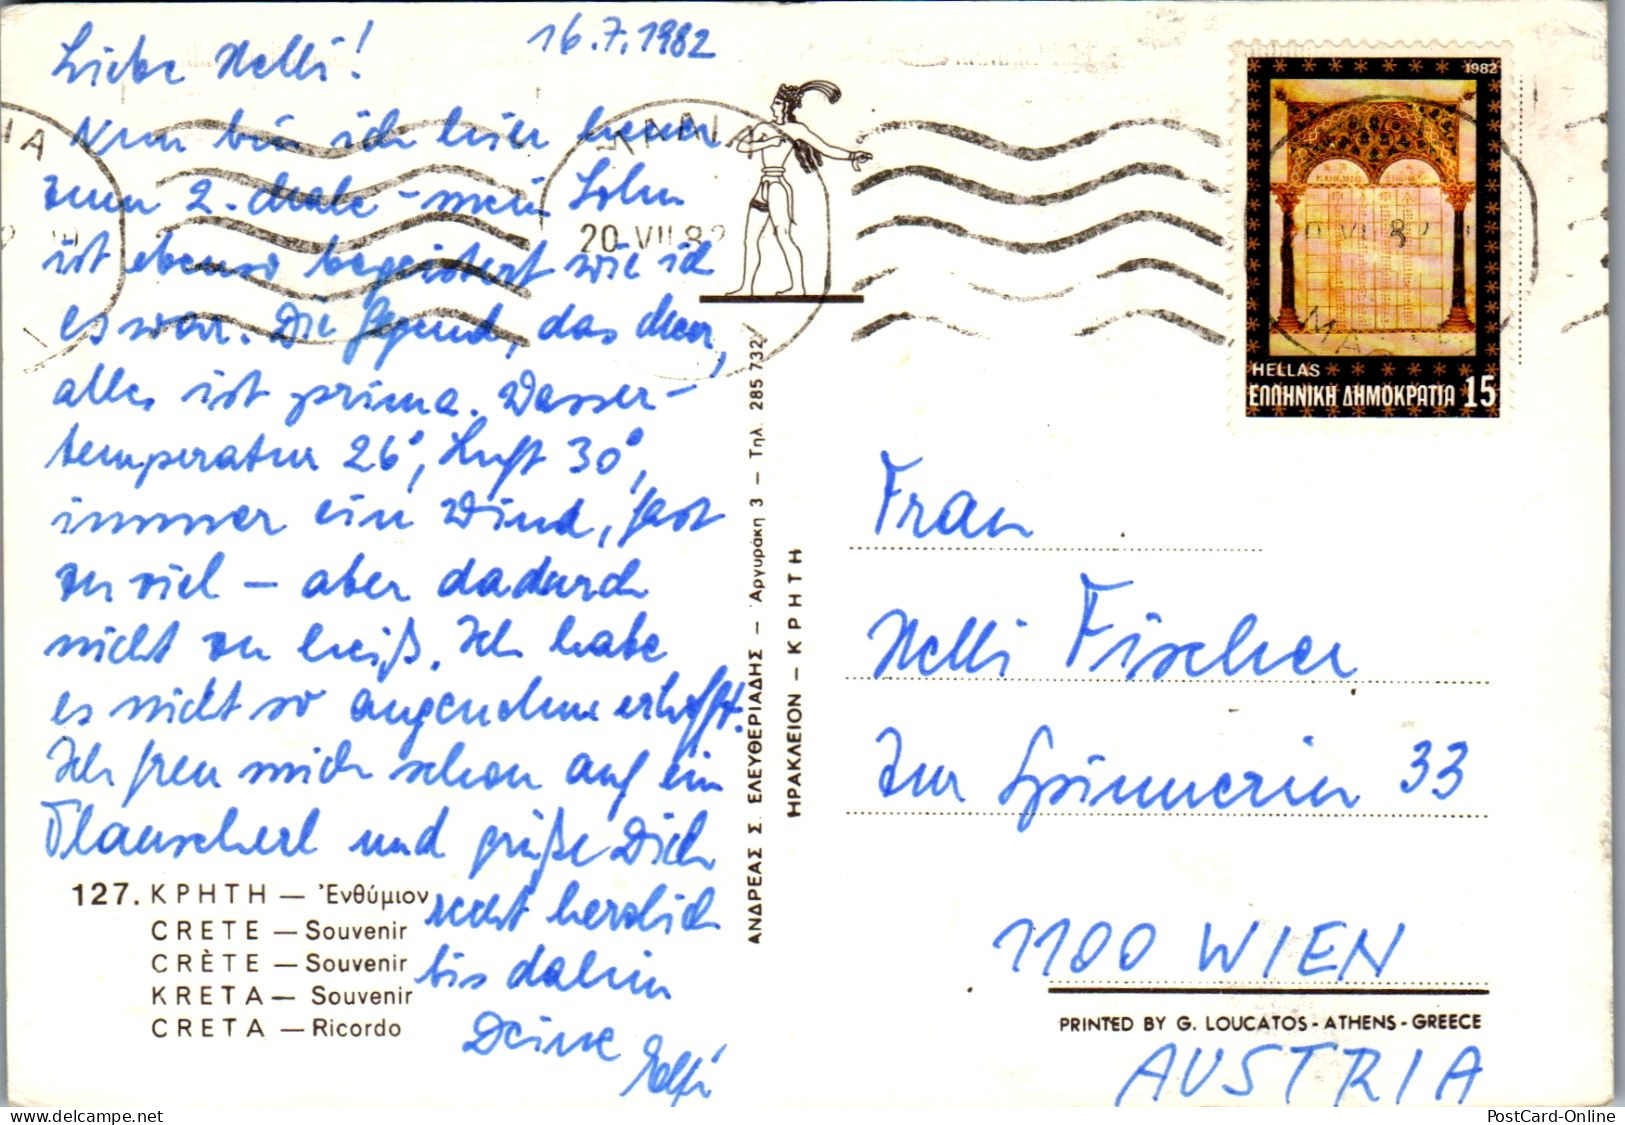 16.7.1982
Liebe Nelli!
Nun bin ich hier heuer
zum 2. Male – mein Sohn
ist ebenso begeistert wie ich
es war. Die Gegend, das Meer,
alles ist prima. Wasser-
temperatur 26°, Luft 30°,
immer ein Wind, fast
zu viel – aber dadurch
nicht zu heiß. Ich habe
es nicht so angenehm erhofft.
Ich freu mich schon auf ein
Plauscherl und grüße Dich
recht herzlich
bis dahin
Deine Elfi
127. ΚΡΗΤΗ — Ἐνθύμιον
CRETE — Souvenir
CRÈTE — Souvenir
KRETA — Souvenir
CRETA — Ricordo
ΑΝΔΡΕΑΣ Σ. ΕΛΕΥΘΕΡΙΑΔΗΣ — Ἀργυράκη 3 — Τηλ. 285 732
ΗΡΑΚΛΕΙΟΝ — ΚΡΗΤΗ
20 VII 82
1982
HELLAS
ΕΛΛΗΝΙΚΗ ΔΗΜΟΚΡΑΤΙΑ 15
Frau
Nelli Fischer
Zur Spinnerin 33
1100 WIEN
PRINTED BY G. LOUCATOS - ATHENS - GREECE
AUSTRIA
PostCard-Online